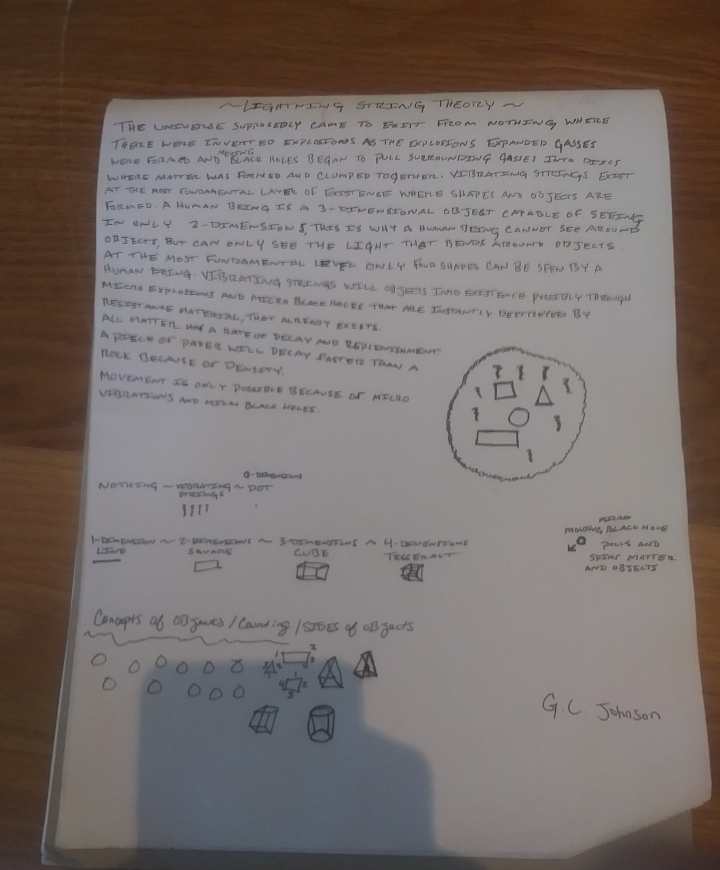 ~ LIGHTNING STRING THEORY ~
THE UNIVERSE SUPPOSEDLY CAME TO EXIST FROM NOTHING WHERE
THERE WERE INVERTED EXPLOSIONS AS THE EXPLOSIONS EXPANDED GASSES
WERE FORMED AND MOVING BLACK HOLES BEGAN TO PULL SURROUNDING GASSES INTO DISCS
WHERE MATTER WAS FORMED AND CLUMPED TOGETHER. VIBRATING STRINGS EXIST
AT THE MOST FUNDAMENTAL LAYER OF EXISTENCE WHERE SHAPES AND OBJECTS ARE
FORMED. A HUMAN BEING IS A 3-DIMENSIONAL OBJECT CAPABLE OF SEEING
IN ONLY 2-DIMENSIONS, THIS IS WHY A HUMAN BEING CANNOT SEE AROUND
OBJECTS, BUT CAN ONLY SEE THE LIGHT THAT BENDS AROUND OBJECTS.
AT THE MOST FUNDAMENTAL LEVEL ONLY FOUR SHAPES CAN BE SEEN BY A
HUMAN BEING. VIBRATING STRINGS WILL OBJECTS INTO EXISTENCE POSSIBLY THROUGH
MICRO EXPLOSIONS AND MICRO BLACK HOLES THAT ARE INSTANTLY DESTROYED BY
RESISTANCE MATERIAL, THAT ALREADY EXISTS.
ALL MATTER HAS A RATE OF DECAY AND REPLENISHMENT.
A PIECE OF PAPER WILL DECAY FASTER THAN A
ROCK BECAUSE OF DENSITY.
MOVEMENT IS ONLY POSSIBLE BECAUSE OF MICRO
VIBRATIONS AND MICRO BLACK HOLES.
0-DIMENSIONS
NOTHING ~ VIBRATING ~ DOT
STRINGS
1-DIMENSION ~ 2-DIMENSIONS ~ 3-DIMENSIONS ~ 4-DIMENSIONS
LINE SQUARE CUBE TESSERACT
MICRO
MOVING BLACK HOLE
PULLS AND
SPINS MATTER
AND OBJECTS
Concepts of OBJects / Counting / SIDES of OBJects
G.C. Johnson